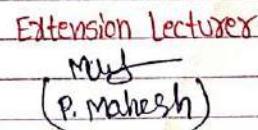 Extension Lecturer
(P. Mahesh)